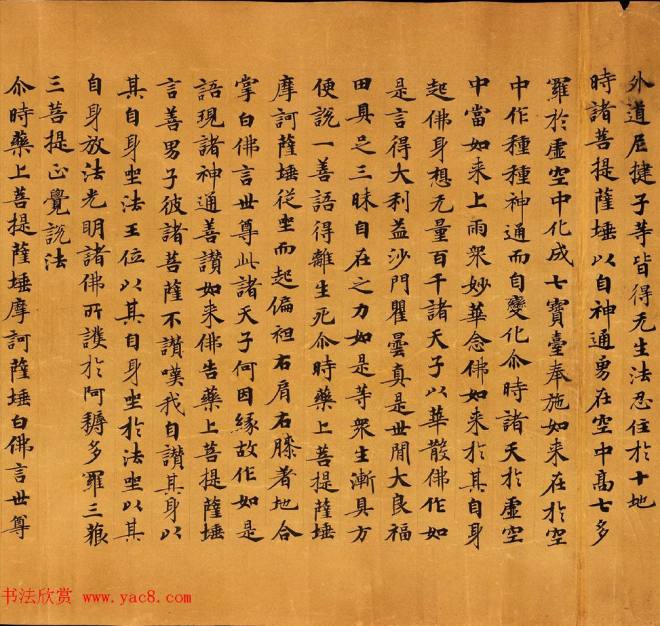 外道尼揵子等皆得无生法忍住於十地
時諸菩提薩埵以自神通勇在空中高七多
羅於虛空中化成七寶臺奉施如来在於空
中作種種神通而自變化尒時諸天於虛空
中當如来上雨衆妙華念佛如来於其自身
起佛身想无量百千諸天子以華散佛作如
是言得大利益沙門瞿曇真是世間大良福
田具足三昧自在之力如是等衆生漸具方
便說一善語得離生死尒時藥上菩提薩埵
摩訶薩埵從坐而起偏袒右肩右膝著地合
掌白佛言世尊此諸天子何因緣故作如是
語現諸神通善讃如来佛告藥上菩提薩埵
言善男子彼諸菩薩不讃嘆我自讃其身以
其自身坐法王位以其自身坐於法坐以其
自身放法光明諸佛所護於阿耨多羅三藐
三菩提正覺說法
尒時藥上菩提薩埵摩訶薩埵白佛言世尊
书法欣赏 www.yac8.com